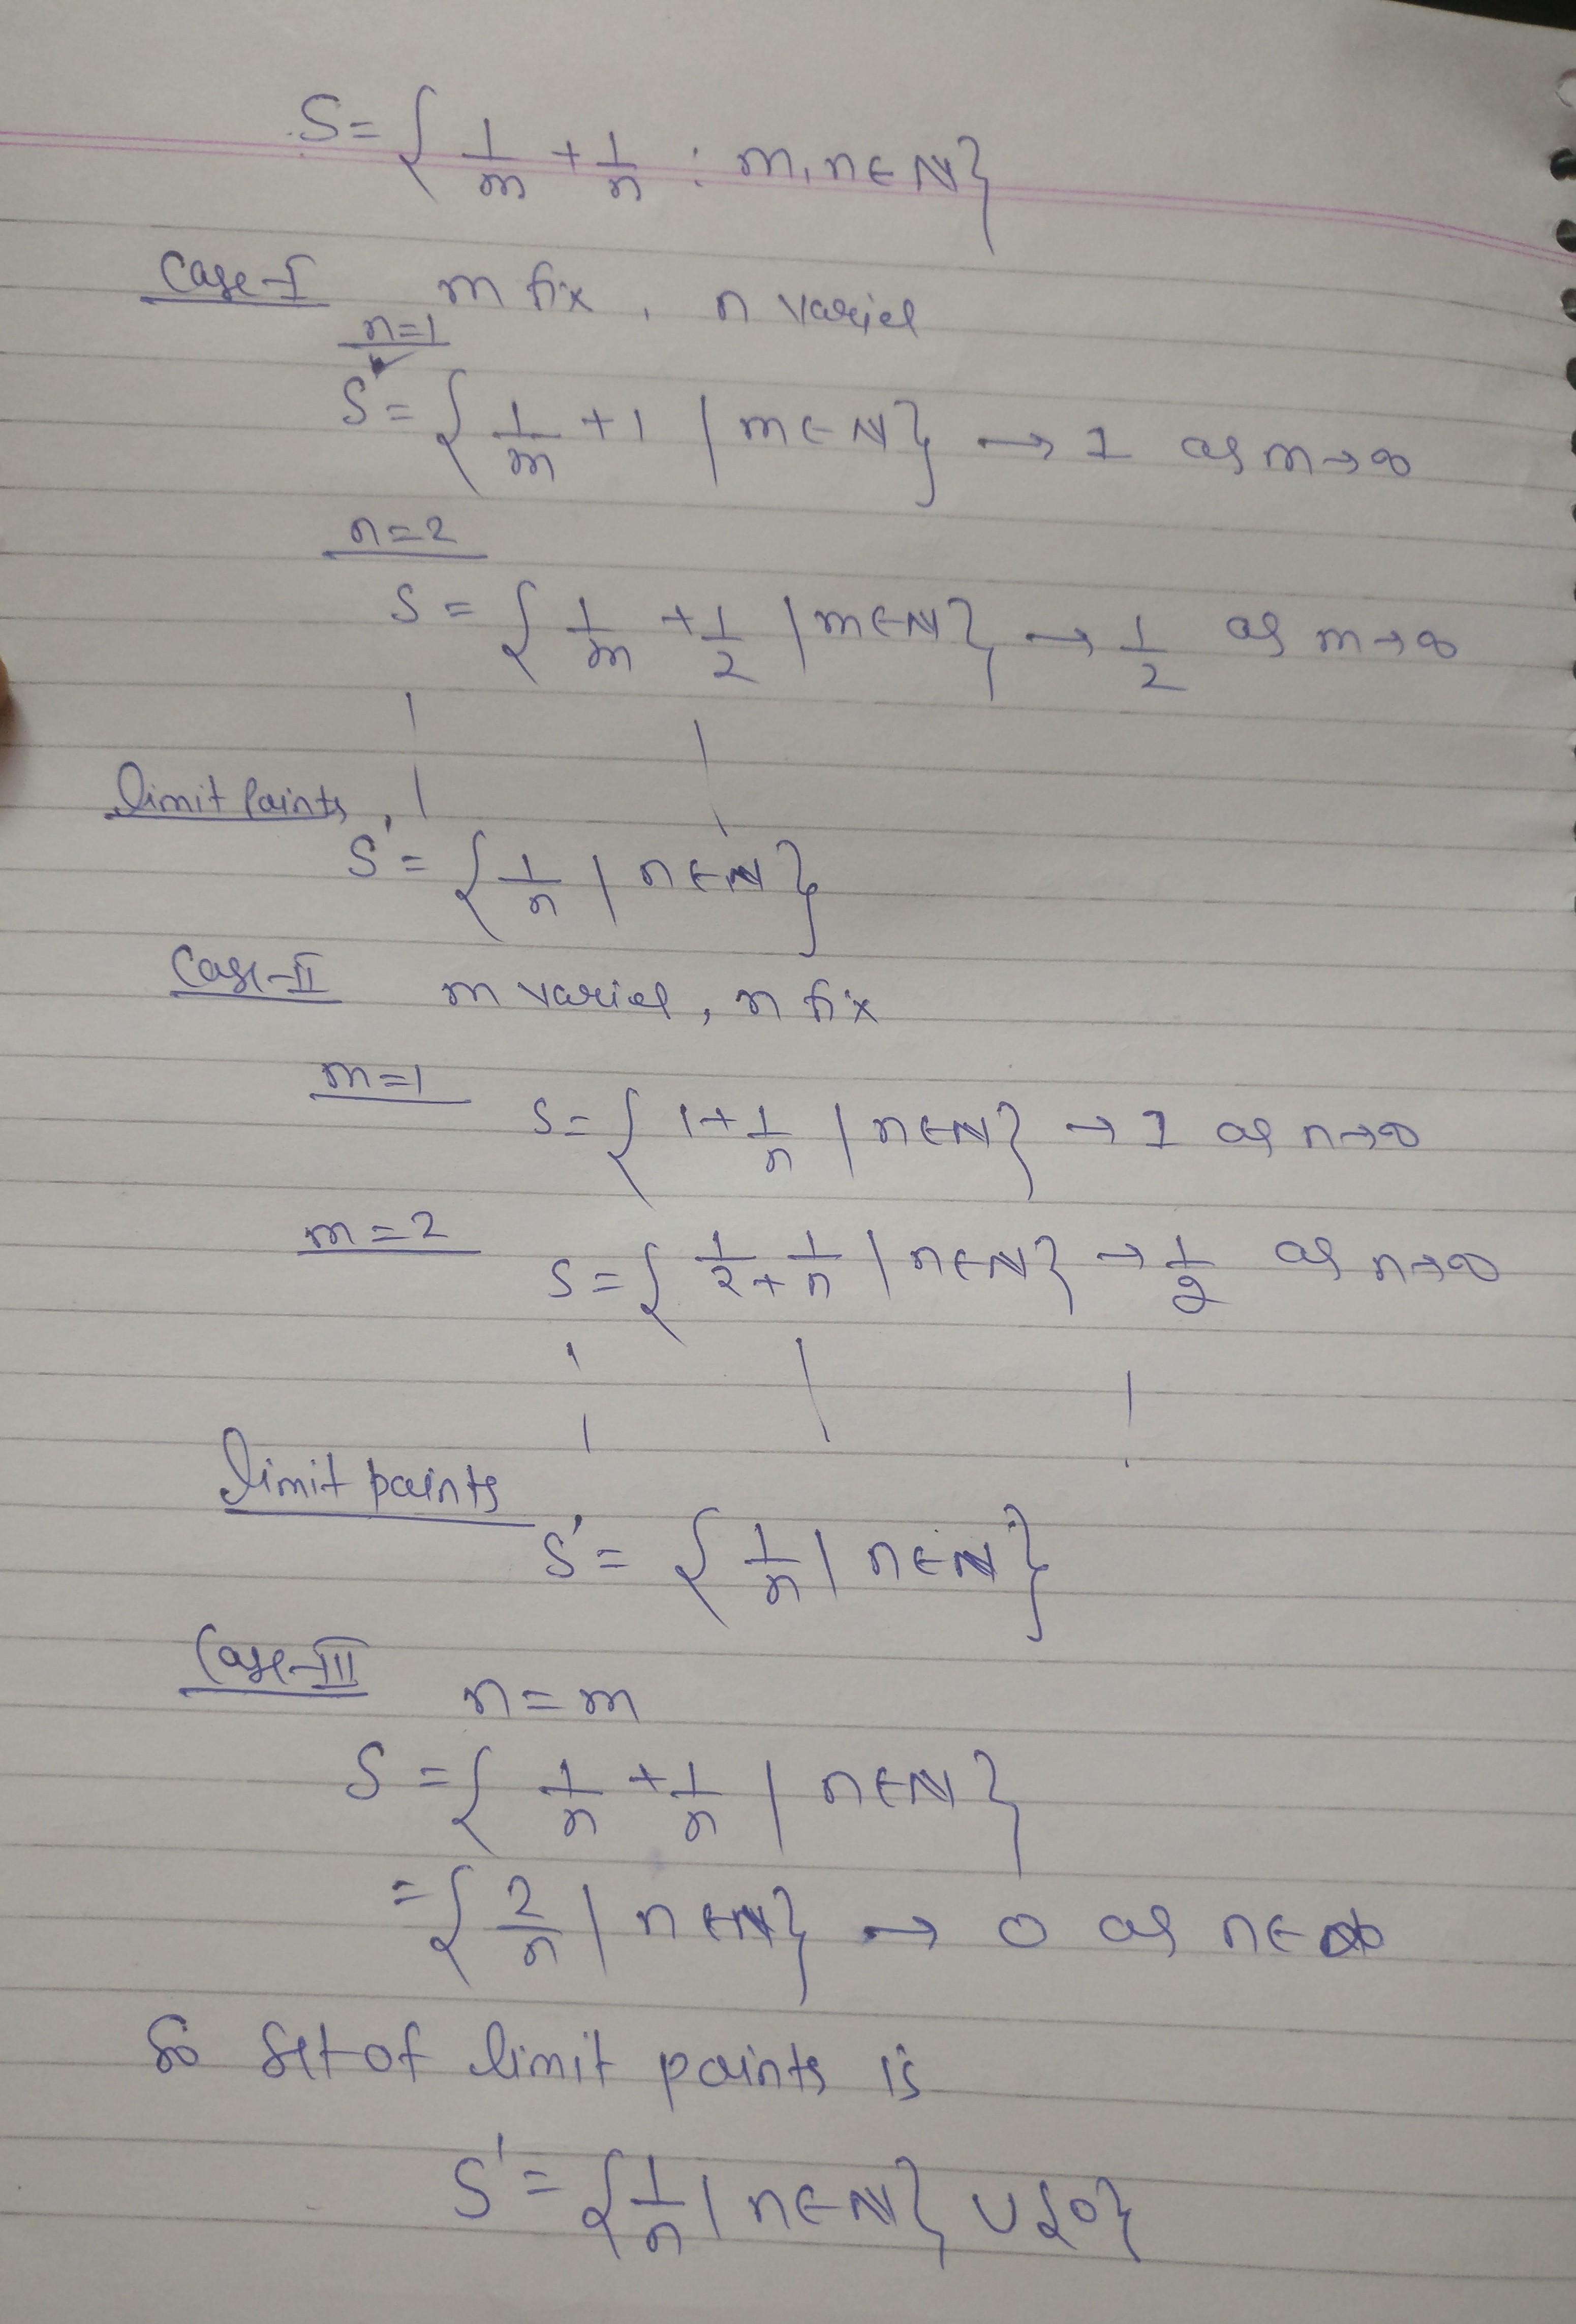 S = { 1/m + 1/n : m, n ∈ N }
Case-I m fix, n varies
n=1
S = { 1/m + 1 | m ∈ N } → 1 as m → ∞
n=2
S = { 1/m + 1/2 | m ∈ N } → 1/2 as m → ∞
limit points
S' = { 1/n | n ∈ N }
Case-II m varies, n fix
m=1
S = { 1 + 1/n | n ∈ N } → 1 as n → ∞
m=2
S = { 1/2 + 1/n | n ∈ N } → 1/2 as n → ∞
limit points
S' = { 1/n | n ∈ N }
Case-III n = m
S = { 1/n + 1/n | n ∈ N }
= { 2/n | n ∈ N } → 0 as n ∈ ∞
So set of limit points is
S' = { 1/n | n ∈ N } ∪ {0}